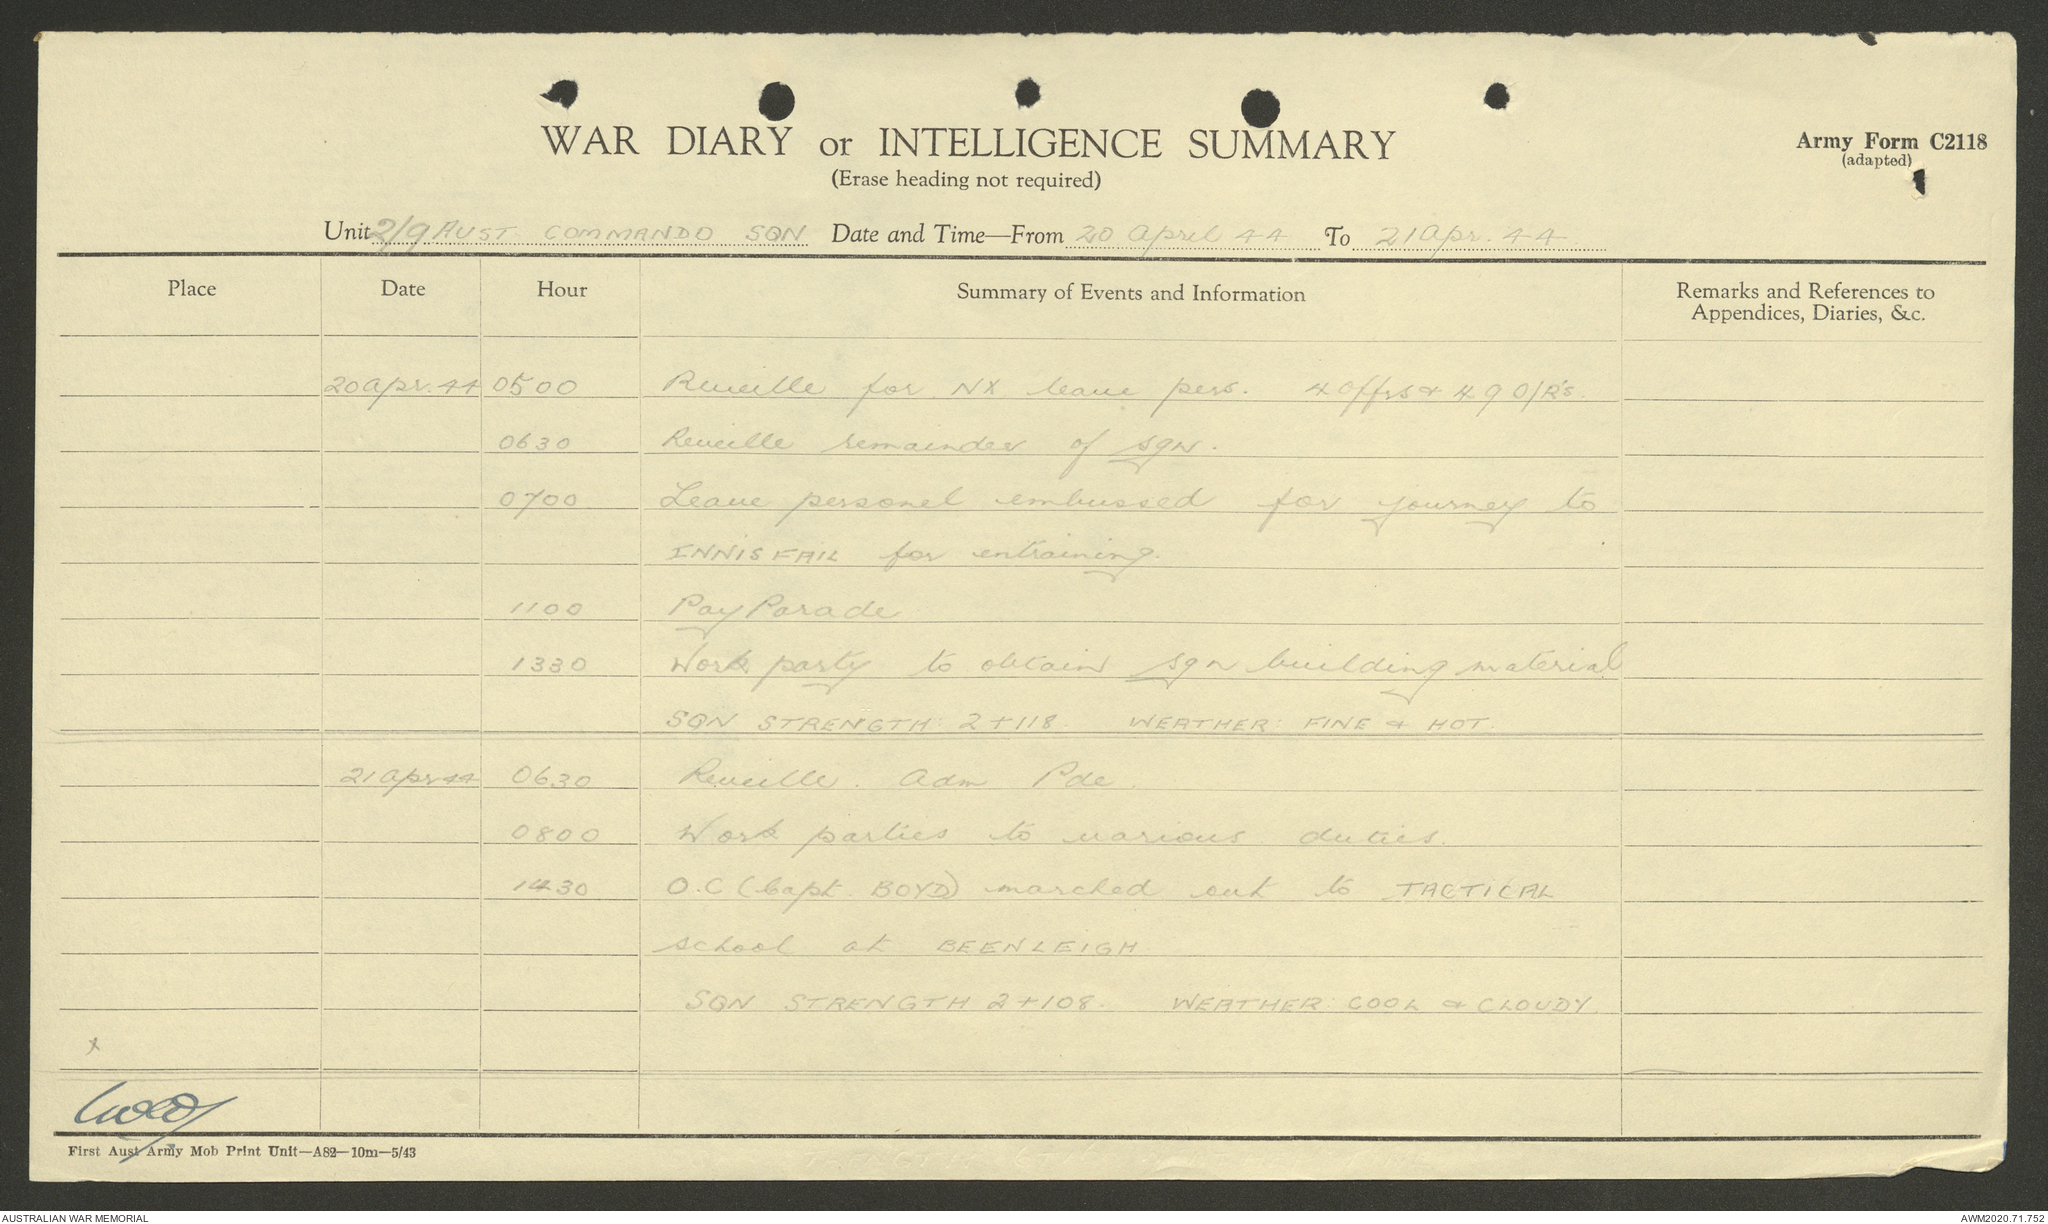 WAR DIARY or INTELLIGENCE SUMMARY
(Erase heading not required)
Army Form C2118
(adapted)
Unit 2/9 AUST COMMANDO SQN Date and Time—From 20 April 44 To 21 Apr. 44
Place Date Hour Summary of Events and Information Remarks and References to
Appendices, Diaries, &c.
20 Apr. 44 0500 Reveille for NX leave pers. 4 Offrs & 49 O/R's.
0630 Reveille remainder of sqn.
0700 Leave personel embussed for journey to
INNISFAIL for entraining.
1100 Pay Parade
1330 Work party to obtain sqn building material
SQN STRENGTH: 2+118. WEATHER: FINE & HOT.
21 Apr 44 0630 Reveille. Adm Pde.
0800 Work parties to various duties.
1430 O.C (Capt. BOYD) marched out to TACTICAL
school at BEENLEIGH.
SQN STRENGTH 2+108. WEATHER: COOL & CLOUDY.
x
First Aust Army Mob Print Unit—A82—10m—5/43
AUSTRALIAN WAR MEMORIAL
AWM2020.71.752